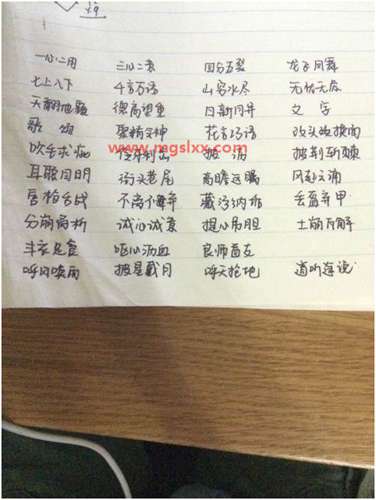 一心二用 三心二意 四分五裂 龙飞凤舞
七上八下 千言万语 山穷水尽 无忧无虑
天翻地覆 德高望重 日新月异 文字
歌颂 聚精会神 花言巧语 改头换面
www.mgslxx.com
吹毛求疵 披 披荆斩棘
耳聪目明 街头巷尾 高瞻远瞩 风起云涌
唇枪舌战 不屑 藏污纳垢 丢盔弃甲
分崩离析 诚心诚意 提心吊胆 土崩瓦解
丰衣足食 呕心沥血 良师益友
呼风唤雨 披星戴月 呼天抢地 道听途说